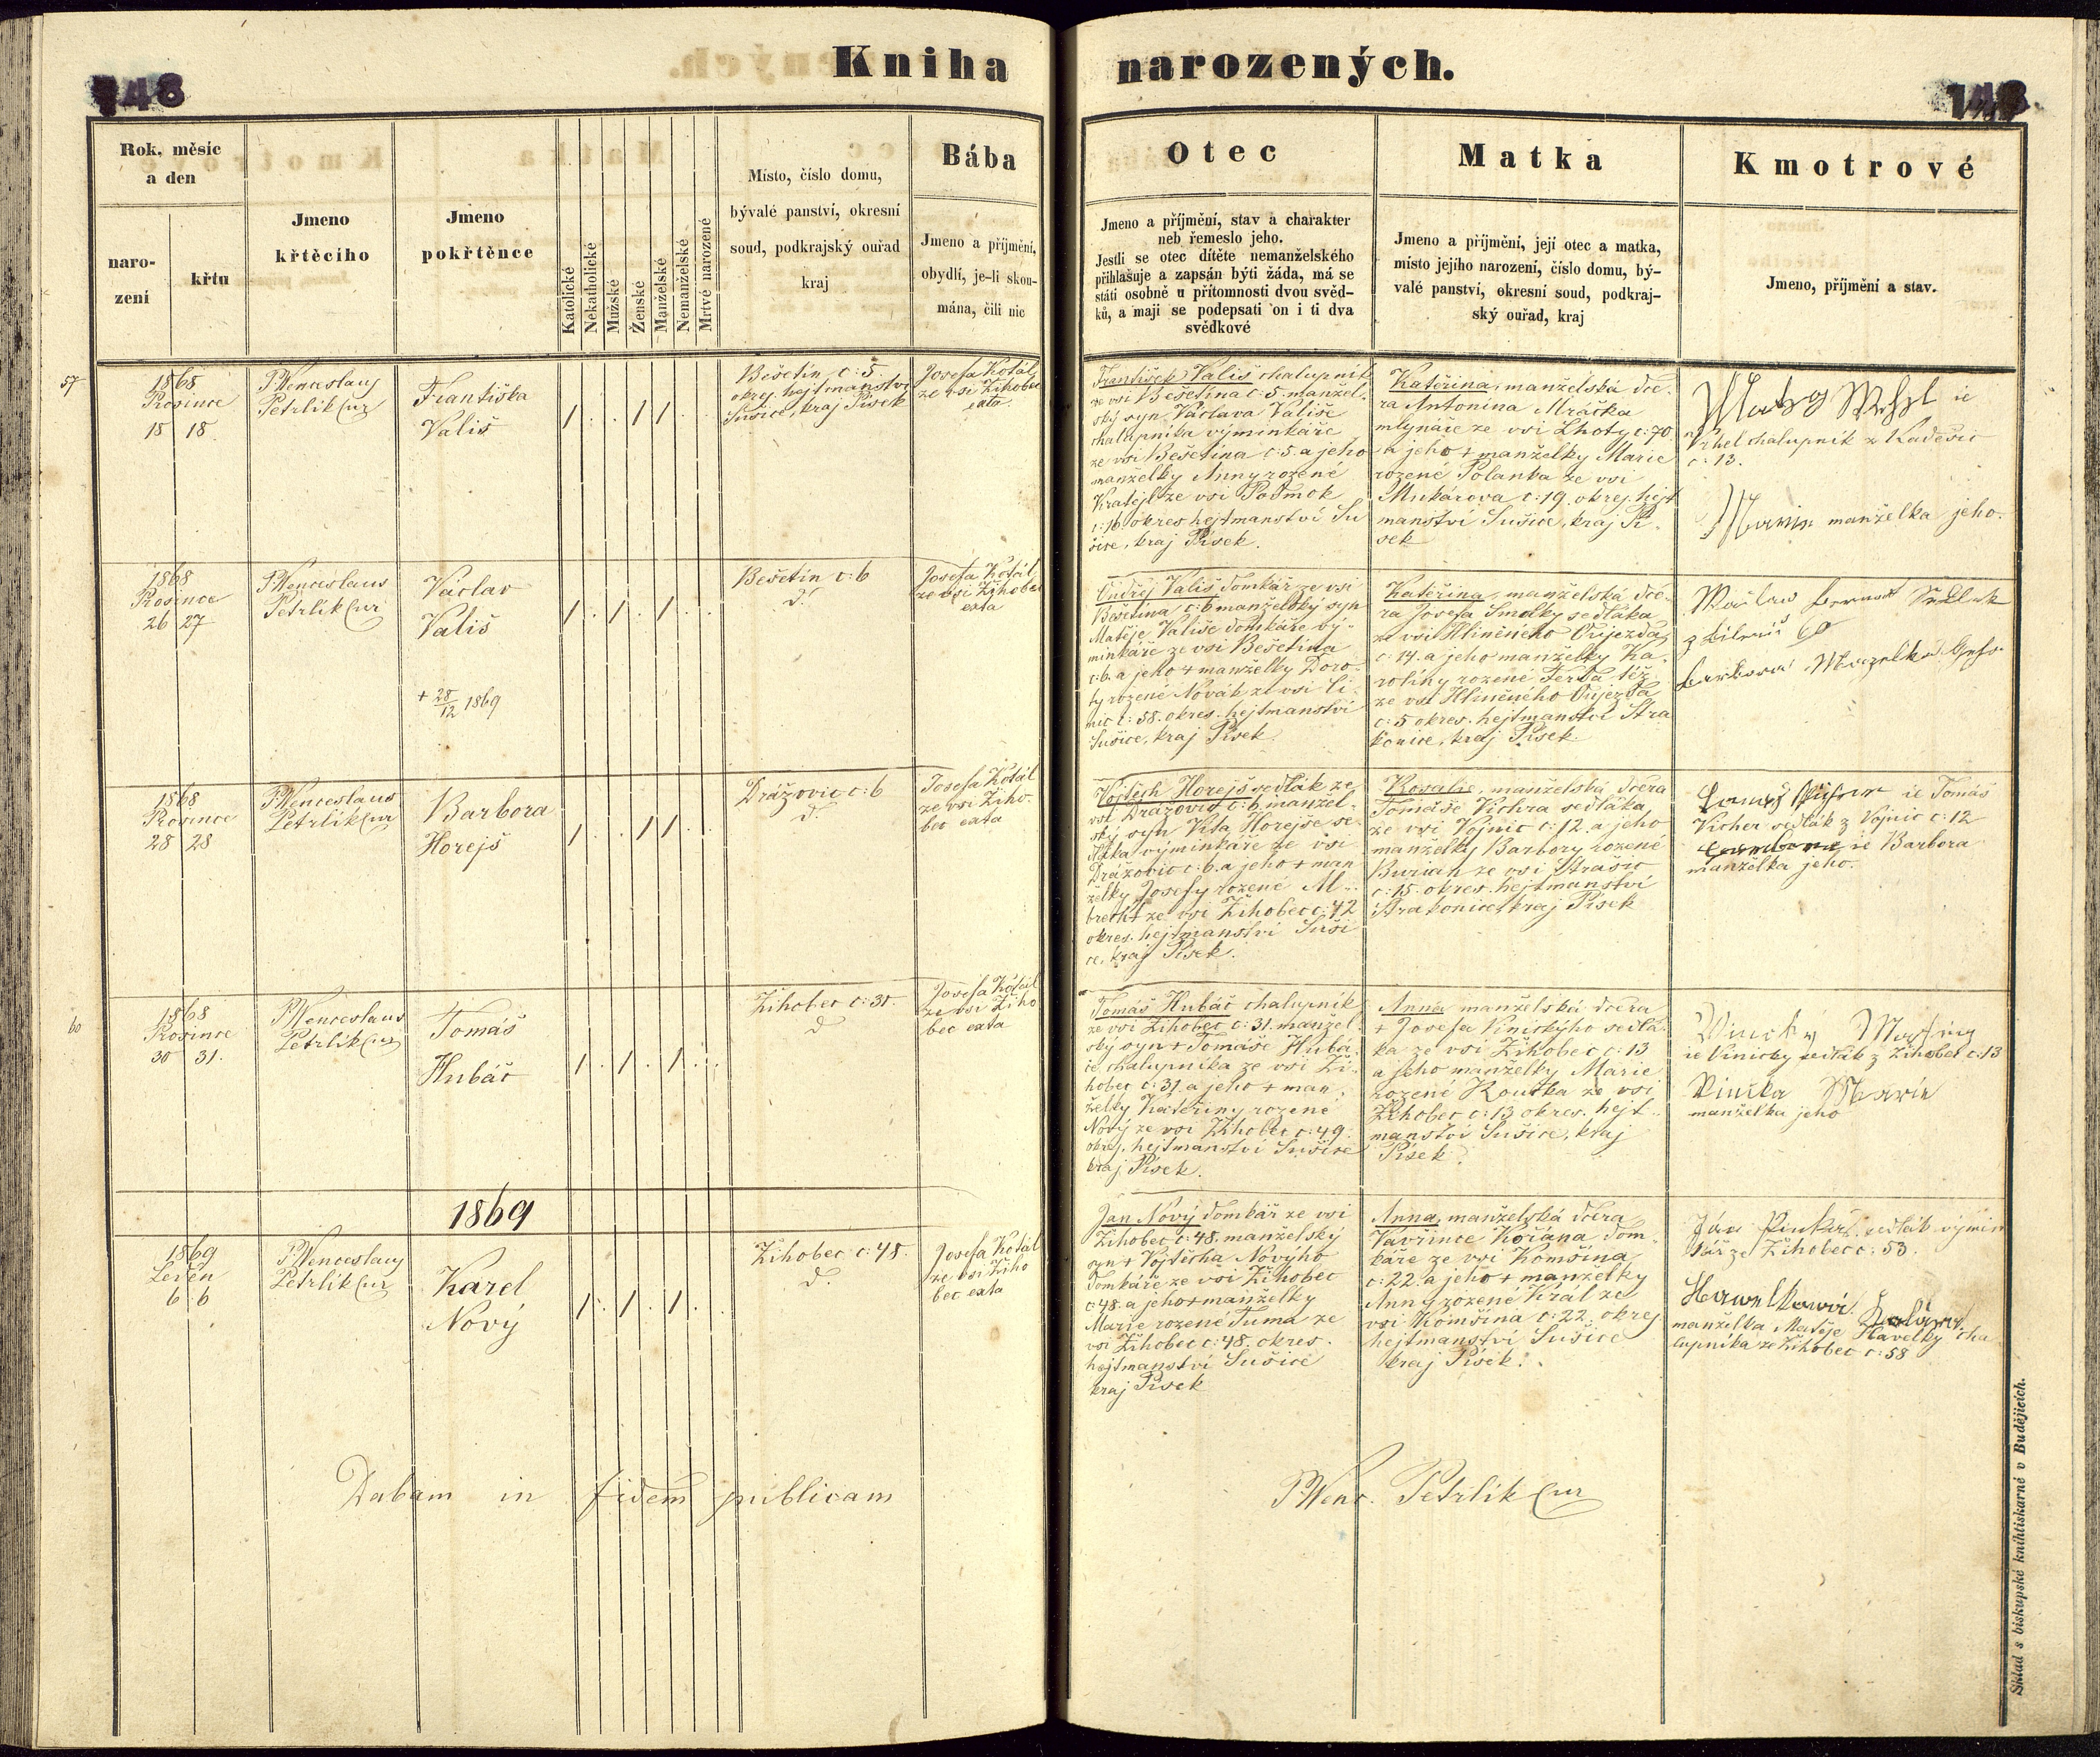 Kniha narozených.
148
148
Rok, měsíc
a den
naro-
zení
křtu
Jmeno
křtěcího
Jmeno
pokřtěnce
Katolické
Nekatholické
Mužské
Ženské
Manželské
Nemanželské
Mrtvé narozené
Místo, číslo domu,
bývalé panství, okresní
soud, podkrajský ouřad
kraj
Bába
Jmeno a příjmění,
obydlí, je-li skou-
mána, čili nic
Otec
Jmeno a příjmění, stav a charakter
neb řemeslo jeho.
Jestli se otec dítěte nemanželského
přihlašuje a zapsán býti žáda, má se
státi osobně u přítomnosti dvou svěd-
ků, a mají se podepsati on i ti dva
svědkové
Matka
Jmeno a příjmění, její otec a matka,
místo jejího narození, číslo domu, bý-
valé panství, okresní soud, podkraj-
ský ouřad, kraj
Kmotrové
Jmeno, příjmění a stav.
57
1868
Prosince
18 18.
P. Wenceslaus
Petrlík Cur
Františka
Vališ
/ . . / / . .
Bešetín č: 5.
okres. hejtmanství
Sušice, kraj Písek
Josefa Kotál
ze vsi Žihobec
exta
František Vališ chalupník
ze vsi Bešetína č: 5. manžel-
ský syn Václava Vališe
chalupníka výminkáře
ze vsi Bešetína č: 5. a jeho
manželky Anny rozené
ze vsi Podmok
č: 16 okres hejtmanství Su
šice, kraj Písek.
Kateřina, manželská dce-
ra Antonína Mráčka
mlynáře ze vsi Lhoty č: 70
a jeho + manželky Marie
rozené Polanka ze vsi
Mukárova č: 19. okres. hejt
manství Sušice, kraj Pí-
sek
ie
Vrhel chalupník z Kadešic
č: 13.
Marie manželka jeho.
1868
Prosince
26 27
P. Wenceslaus
Petrlík Cur
Václav
Vališ
+ 28/12 1869
/ . / . / . .
Bešetín č: 6
d.
Josefa Kotál
ze vsi Žihobec
exta
Ondřej Vališ domkář ze vsi
Bešetína č: 6 manželský syn
Matěje Vališe domkáře vý-
minkáře ze vsi Bešetína
č: 6. a jeho + manželky Doro-
ty rozené Novák ze vsi
č: 58. okres. hejtmanství
Sušice, kraj Písek.
Kateřina, manželská dce-
ra Josefa Smolky sedláka
ze vsi Hliněného Oujezda
č: 14. a jeho manželky Ka-
rolíny rozené Ferda též
ze vsi Hliněného Oujezda
č: 5 okres. hejtmanství Stra
konice, kraj Písek
1868
Prosince
28 28
P. Wenceslaus
Petrlík Cur
Barbora
Horejš
/ . . / / . .
Drážovic č: 6
d.
Josefa Kotál
ze vsi Žiho-
bec exta
Vojtěch Horejš sedlák ze
vsi Dražovic č: 6 manžel-
ský syn Víta Horejše se-
dláka výminkáře ze vsi
Dražovic č: 6. a jeho + man
želky Josefy rozené Al-
brecht ze vsi Žihobec č: 42
okres. hejtmanství Suši
ce, kraj Písek.
Rosalie, manželská dcera
Tomáše Vichra sedláka
ze vsi Vojnic č: 12. a jeho
manželky Barbory rozené
Burian ze vsi Strašic
č: 15. okres. hejtmanství
Strakonice, kraj Písek
ie Tomáš
Vicher sedlák z Vojnic č: 12
ie Barbora
manželka jeho.
60
1868
Prosince
30 31.
P. Wenceslaus
Petrlík Cur
Tomáš
Hubáč
/ . / . / . .
Žihobec č: 31.
d.
Josefa Kotál
ze vsi Žiho
bec exta
Tomáš Hubáč chalupník
ze vsi Žihobec č: 31. manžel-
ský syn + Tomáše Hubá-
če chalupníka ze vsi Ži-
hobec č: 31 a jeho + man-
želky Kateřiny rozené
Nový ze vsi Žihobec č: 49.
okres. hejtmanství Sušice
kraj Písek.
Anna manželská dcera
+ Josefa Vinickýho sedlá-
ka ze vsi Žihobec č: 13
a jeho manželky Marie
rozené Koutka ze vsi
Žihobec č: 13 okres. hejt-
manství Sušice, kraj
Písek.
ie Vinicky sedlák z Žihobec č: 13
Marie
manželka jeho
1869
1869
Leden
6 6
P. Wenceslaus
Petrlík Cur
Karel
Nový
/ . / . / . .
Žihobec č: 48.
d.
Josefa Kotál
ze vsi Žiho
bec exta
Jan Nový domkář ze vsi
Žihobec č: 48. manželský
syn + Vojtěcha Novýho
domkáře ze vsi Žihobec
č: 48. a jeho + manželky
Marie rozené Tuma ze
vsi Žihobec č: 48. okres.
hejtmanství Sušice
kraj Písek
Anna, manželská dcera
Vavřince Kořána dom-
káře ze vsi Komšína
č: 22. a jeho + manželky
Anny rozené Král ze
vsi Komšína č: 22. okres
hejtmanství Sušice
kraj Písek.
Ján sedlák výmin
kář ze Žihobec č: 53.
Hawelkowá
manželka Matěje Havelky cha
lupníka ze Žihobec č: 58
Dabam in fidem publicam
P. Wenc. Petrlík Cur
Sklad s biskupské knihtiskárně v Budějicích.